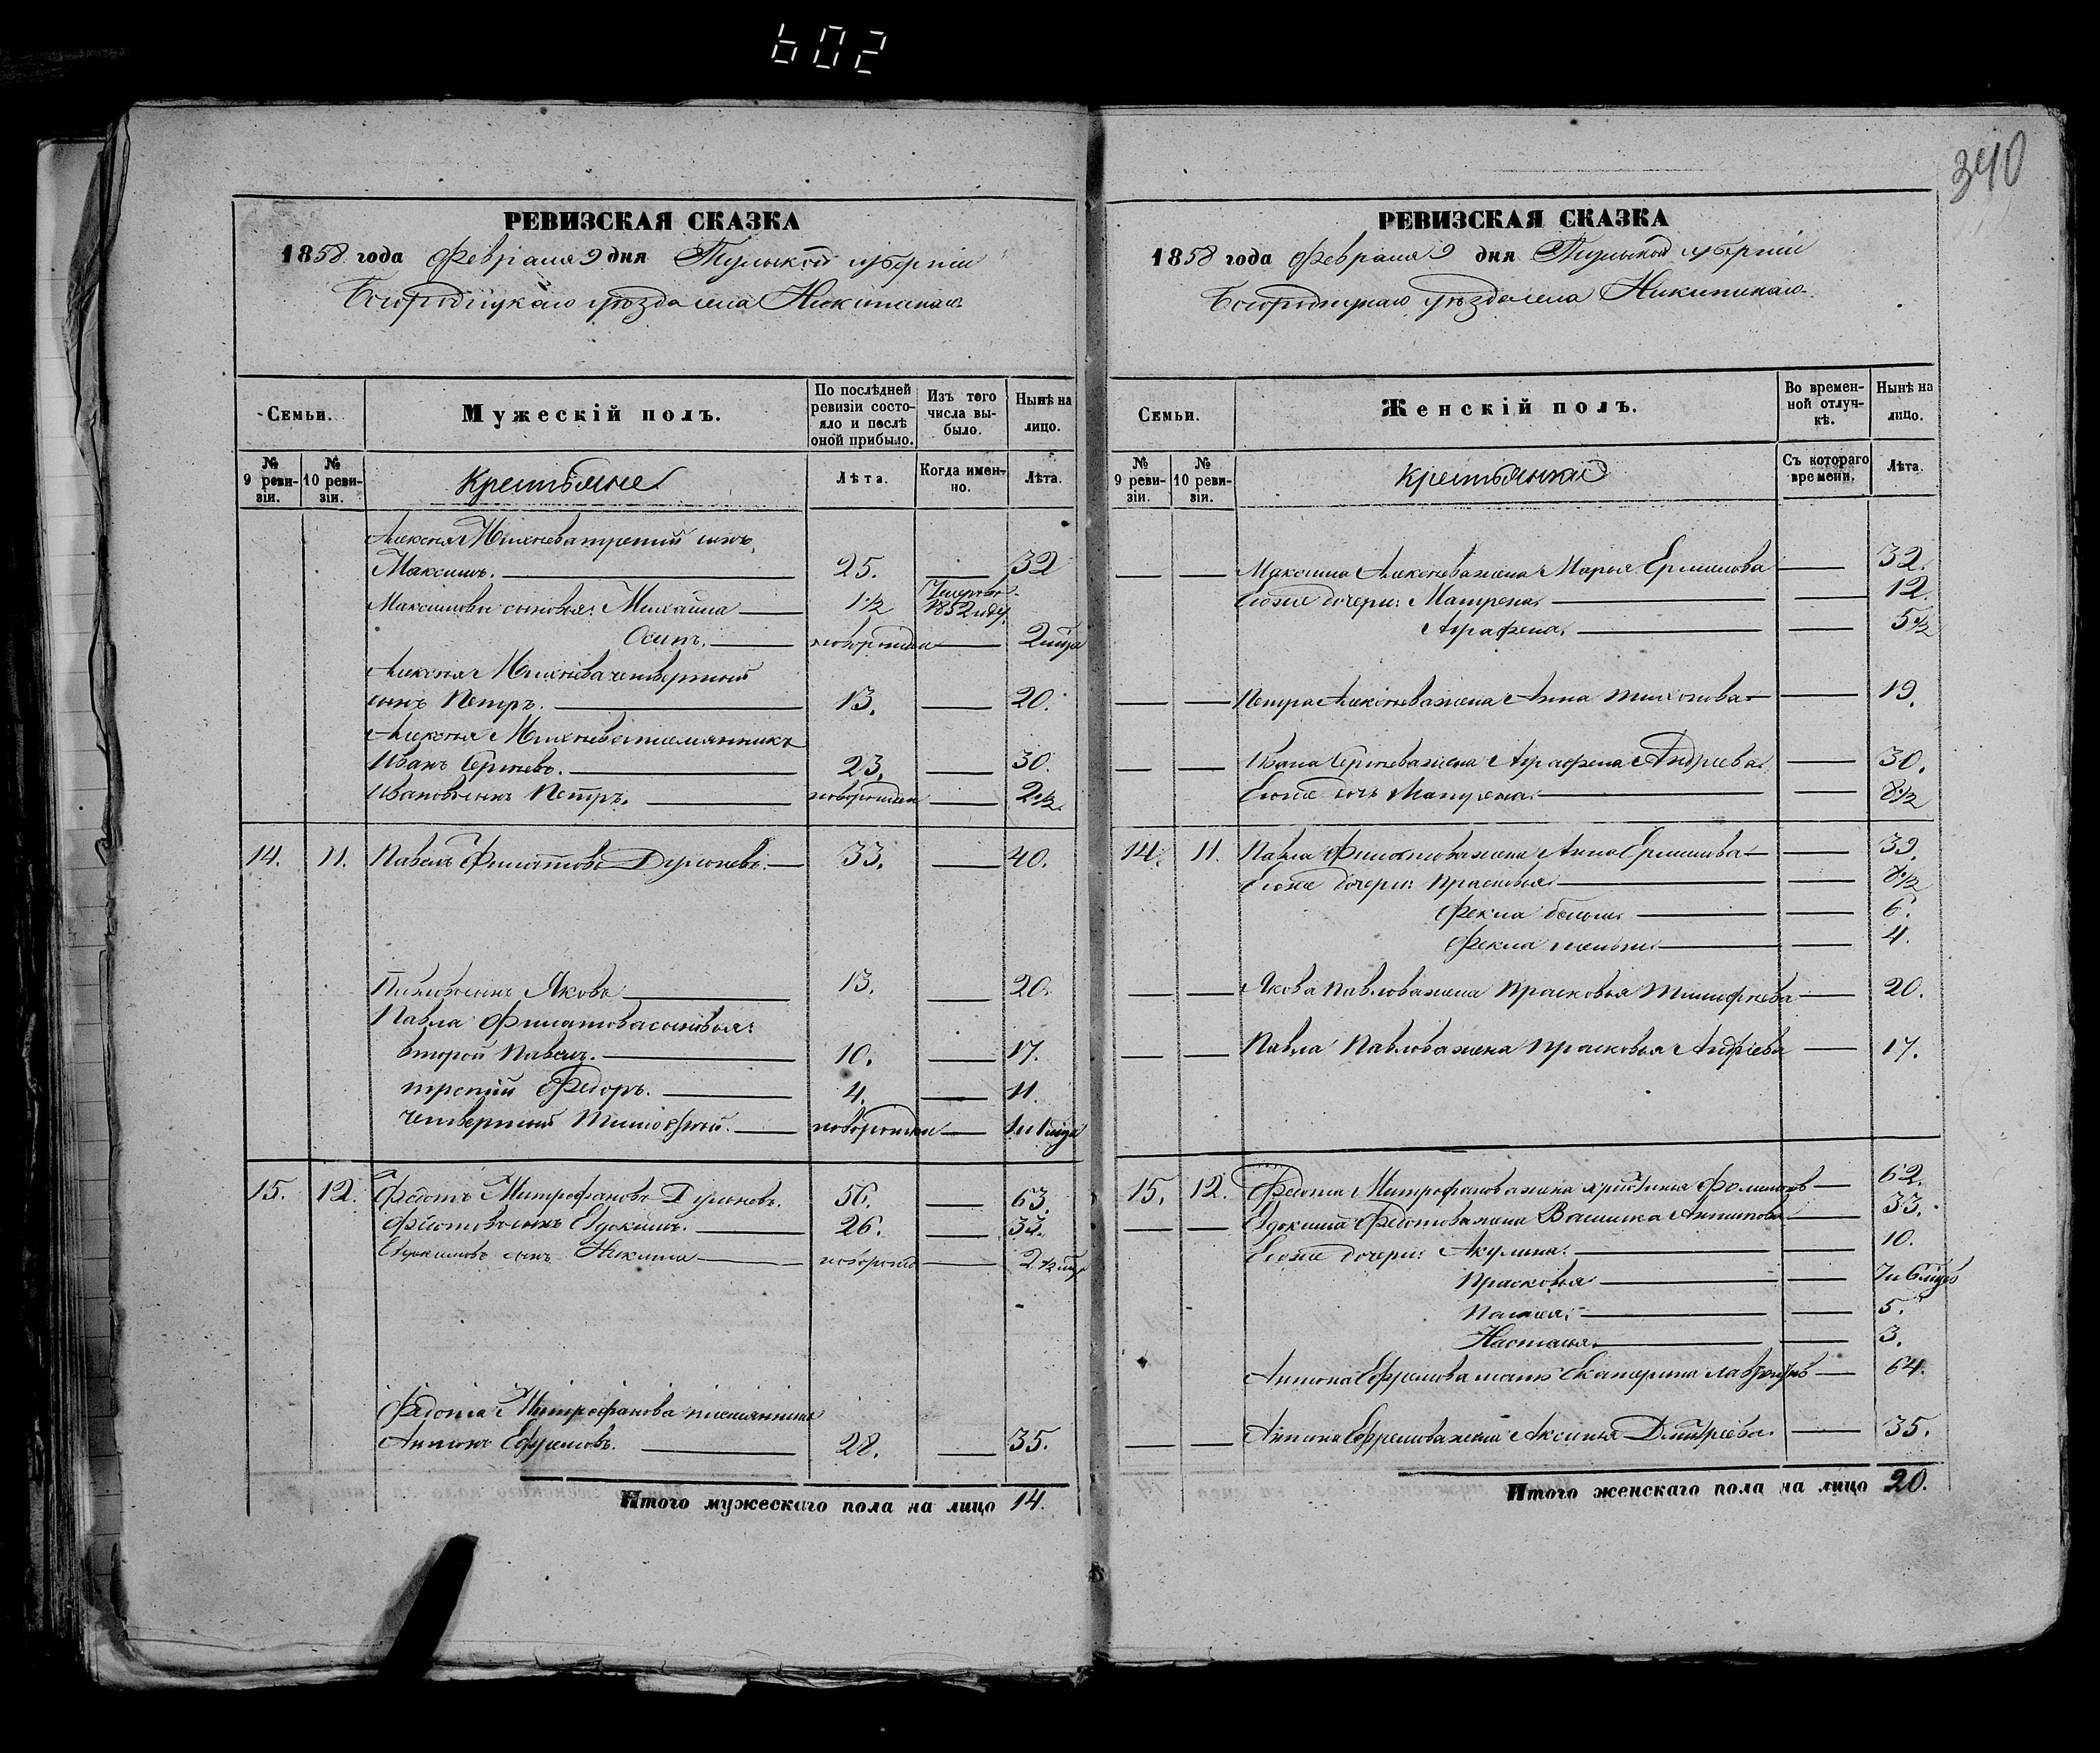 602
340
РЕВИЗСКАЯ СКАЗКА
1858 года Февраля 9 дня Тульской губерніи
Богородицкаго уѣзда села Никитскаго
Семьи.
Мужескій полъ.
По послѣдней ревизіи состояло и послѣ оной прибыло.
Изъ того числа выбыло.
Нынѣ на лицо.
№ 9 ревизіи.
№ 10 ревизіи.
Крестьяне
Лѣта.
Когда именно.
Лѣта.
Алексея Михеева третий сынъ
Максимъ. 25. 32
Максимовы сыновья: Михаила 1 1/2 Умеръ въ 1852 году.
Осипъ. новорожден 2 мца
Алексея Михеева четвертый
сынъ Петръ. 13. 20.
Алексея Михеева племянникъ
Иванъ Сергѣевъ. 23. 30.
Ивановъ сынъ Петръ. новорожден 2 1/2
14. 11. Павелъ Филатовъ 33. 40.
Павловъ сынъ Яковъ 13. 20.
Павла Филатова сыновья:
второй Павелъ. 10. 17.
третий Федоръ. 4. 11.
четвертый Тимофей. новорожден 1 и 1 мца
15. 12. Федотъ Митрофановъ 56. 63.
Федотовъ сынъ Евдокимъ. 26. 33.
Евдокимовъ сынъ Никита новорожд 2 1/2 мца
Федота Митрофанова племянникъ
Антонъ Ефремовъ. 28. 35.
Итого мужескаго пола на лицо 14.
РЕВИЗСКАЯ СКАЗКА
1858 года Февраля 9 дня Тульской губерніи
Богородицкаго уѣзда села Никитскаго
Семьи.
Женскій полъ.
Во временной отлучкѣ.
Нынѣ на лицо.
№ 9 ревизіи.
№ 10 ревизіи.
Крестьянки
Съ котораго времени.
Лѣта.
Максима Алексеева жена Марья Ермилова 32.
Ево же дочери: Матрена 12.
Аграфена. 5 1/2
Петра Алексеева жена Анна Тихонова 19.
Ивана Сергеева жена Аграфена Андреева 30.
Ево же дочь Матрена. 8 1/2
14. 11. Павла Филатова жена Анна Ермилова 39.
Ево же дочери: Прасковья 8 1/2
Фекла больш. 6.
Фекла меньш. 4.
Якова Павлова жена Прасковья Тимофеева 20.
Павла Павлова жена Прасковья Андреева 17.
15. 12. Федота Митрофанова жена 62.
Евдокима Федотова жена Василиса Антипова 33.
Ево же дочери: Акулина. 10.
Прасковья 7 и 6 мцов
Палагея. 5.
Настасья. 3.
Антона Ефремова мать Екатерина 64.
Антона Ефремова жена Аксинья Дмитреева. 35.
Итого женскаго пола на лицо 20.